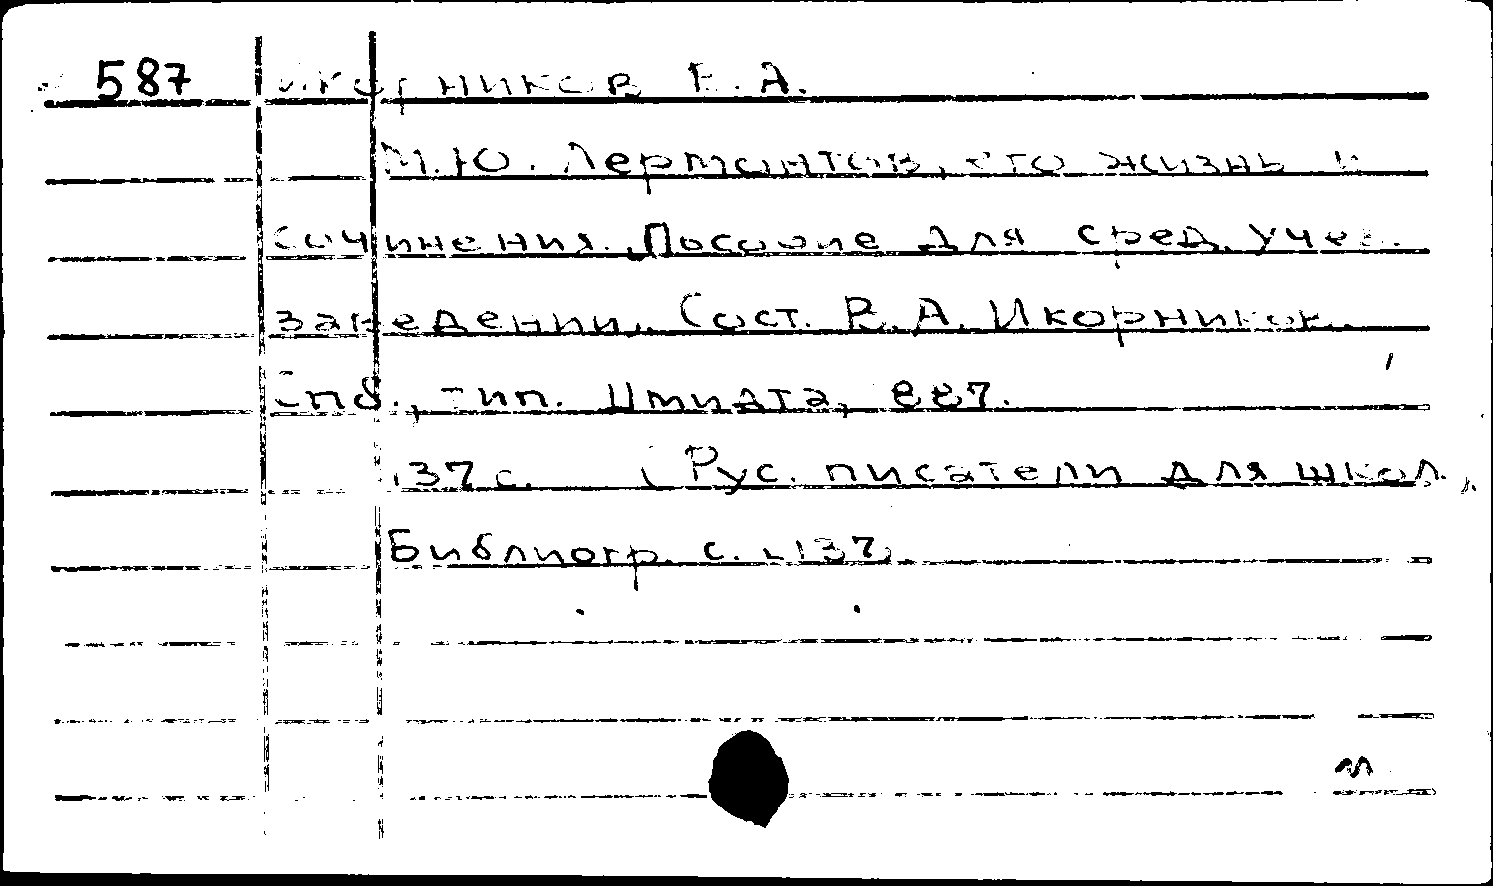 587 Икорников В. А.
М.Ю. Лермонтов, его жизнь и
сочинения. Пособие для сред. учеб.
заведений. Сост. В. А. Икорников.
Спб., тип. Шмидта, 1887.
137 с. (Рус. писатели для школ.
Библиогр. с. 137.